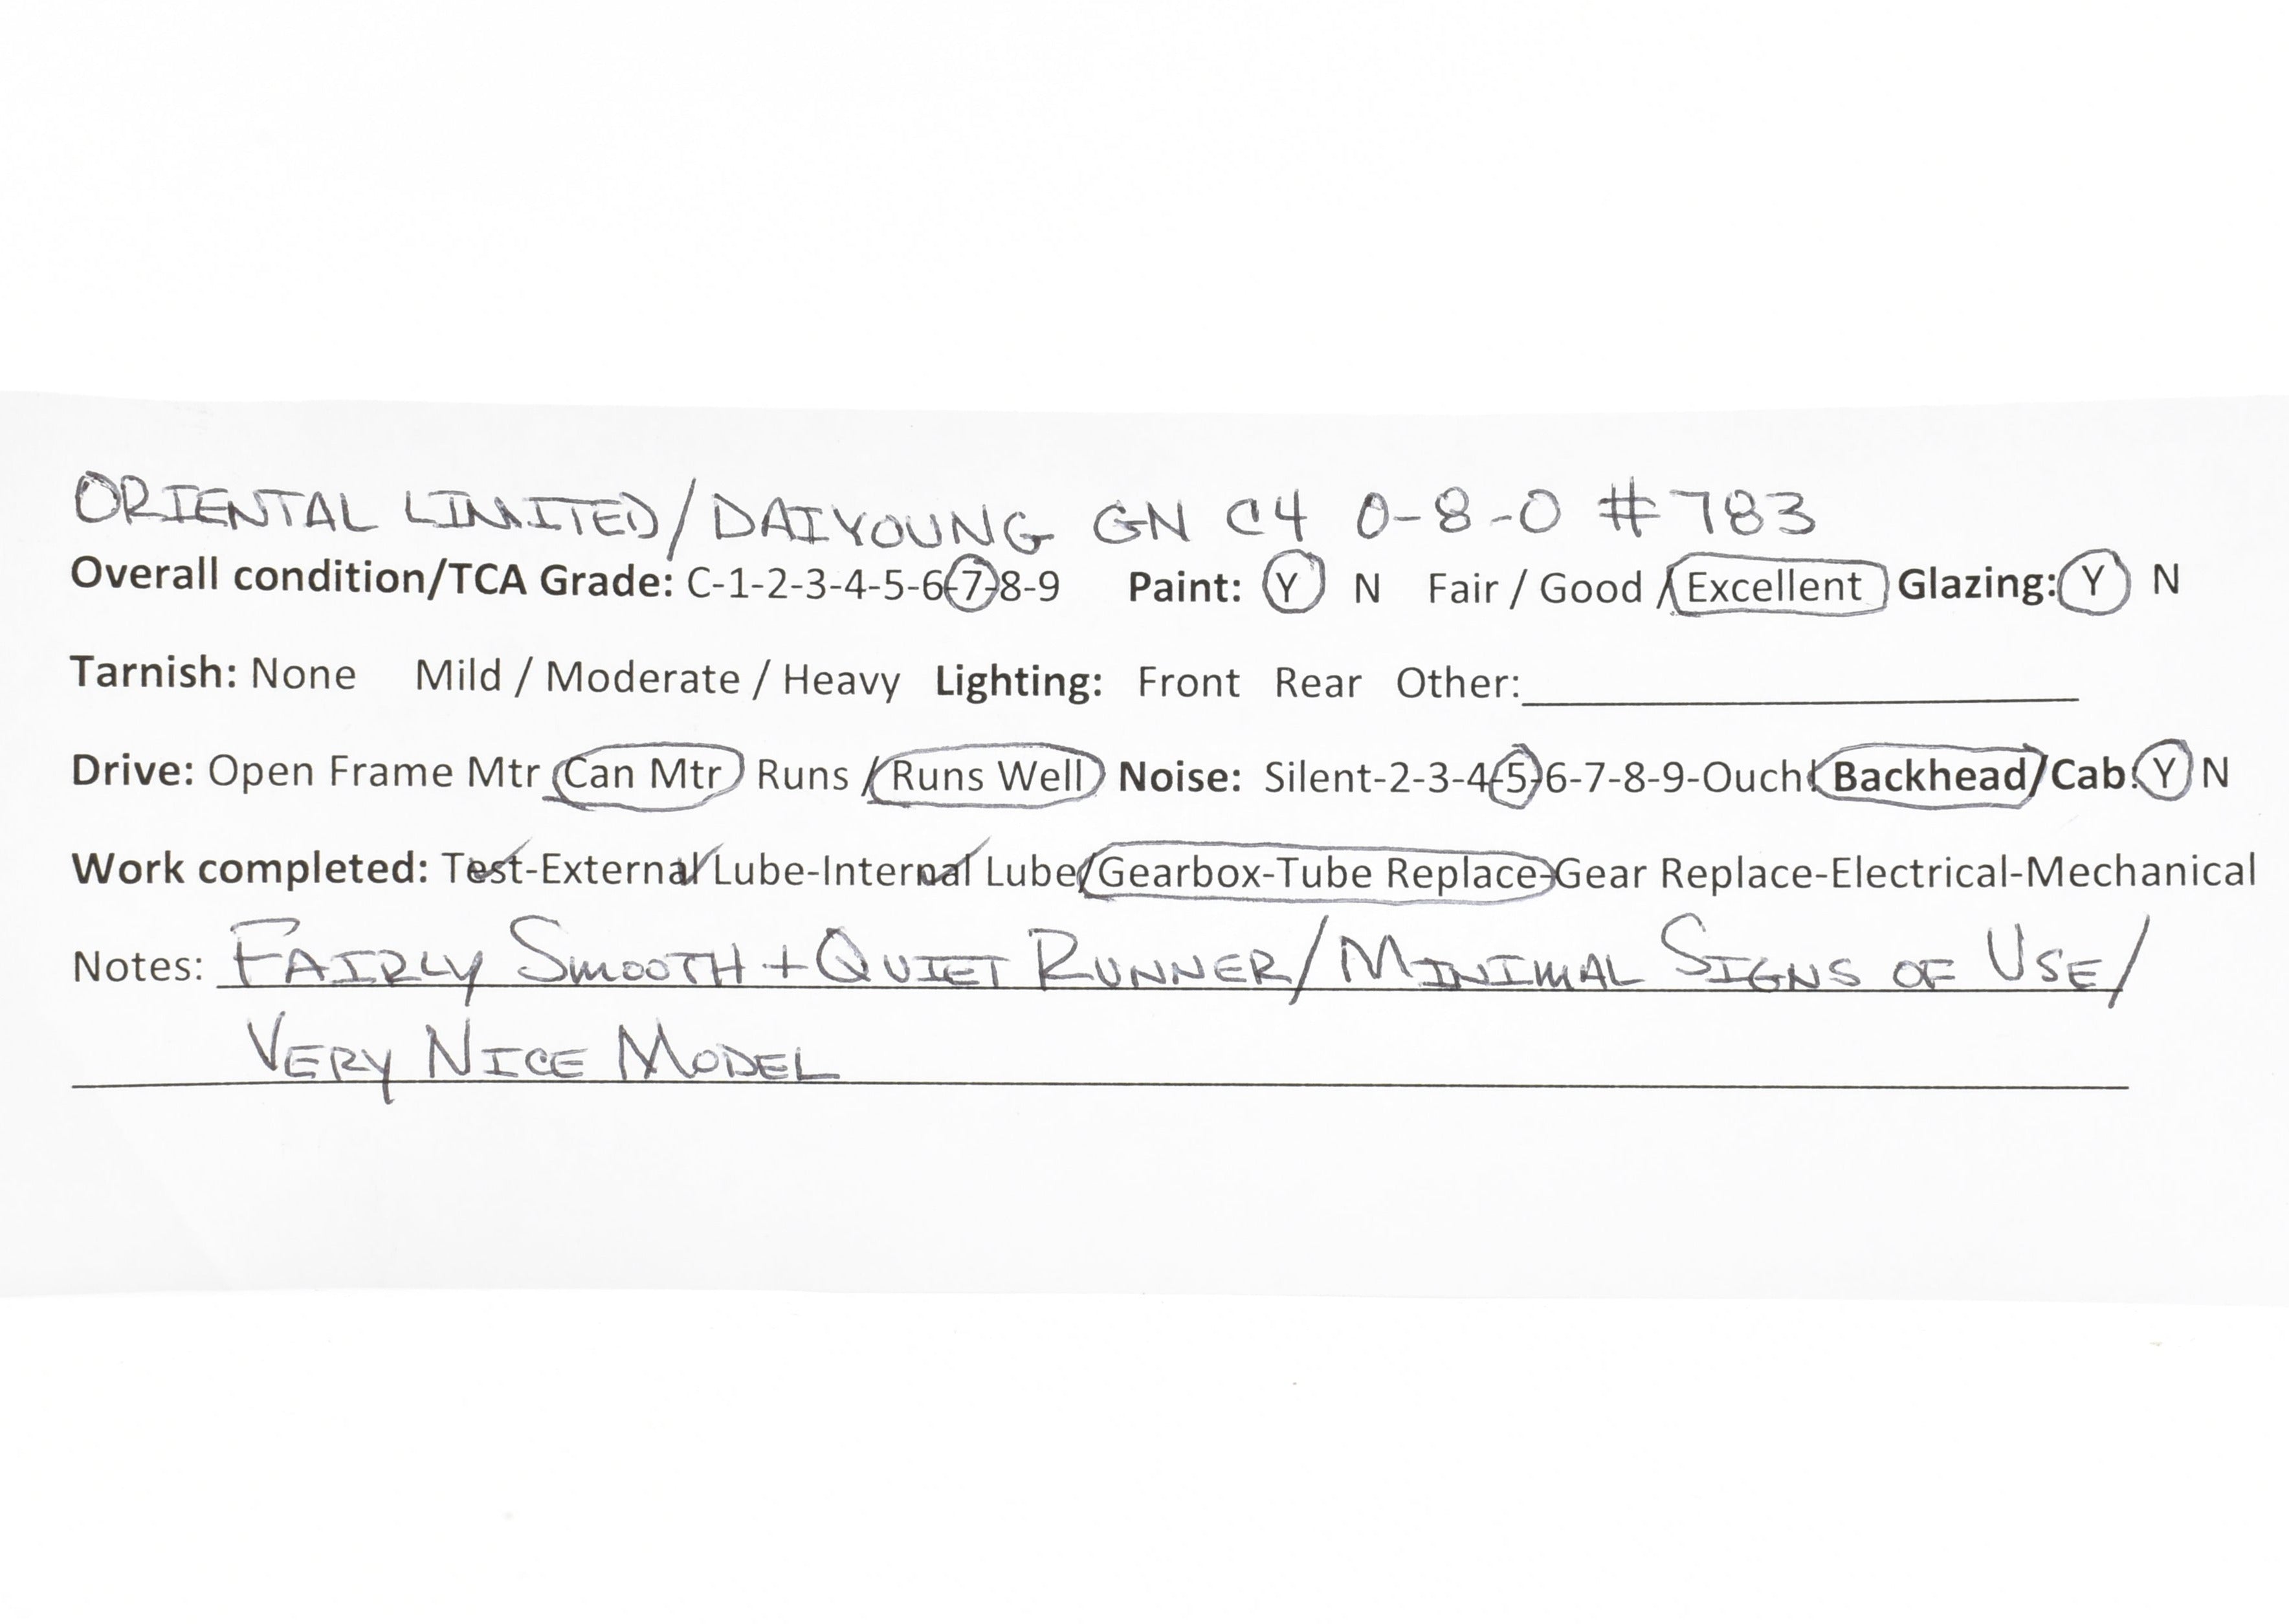 ORIENTAL LIMITED/DAIYOUNG GN C4 0-8-0 #783
Overall condition/TCA Grade: C-1-2-3-4-5-6-7-8-9 Paint: Y N Fair / Good / Excellent Glazing: Y N
Tarnish: None Mild / Moderate / Heavy Lighting: Front Rear Other:
Drive: Open Frame Mtr Can Mtr Runs / Runs Well Noise: Silent-2-3-4-5-6-7-8-9-Ouch! Backhead/Cab: Y N
Work completed: Test-External Lube-Internal Lube/Gearbox-Tube Replace-Gear Replace-Electrical-Mechanical
Notes: FAIRLY SMOOTH + QUIET RUNNER/MINIMAL SIGNS OF USE/
VERY NICE MODEL